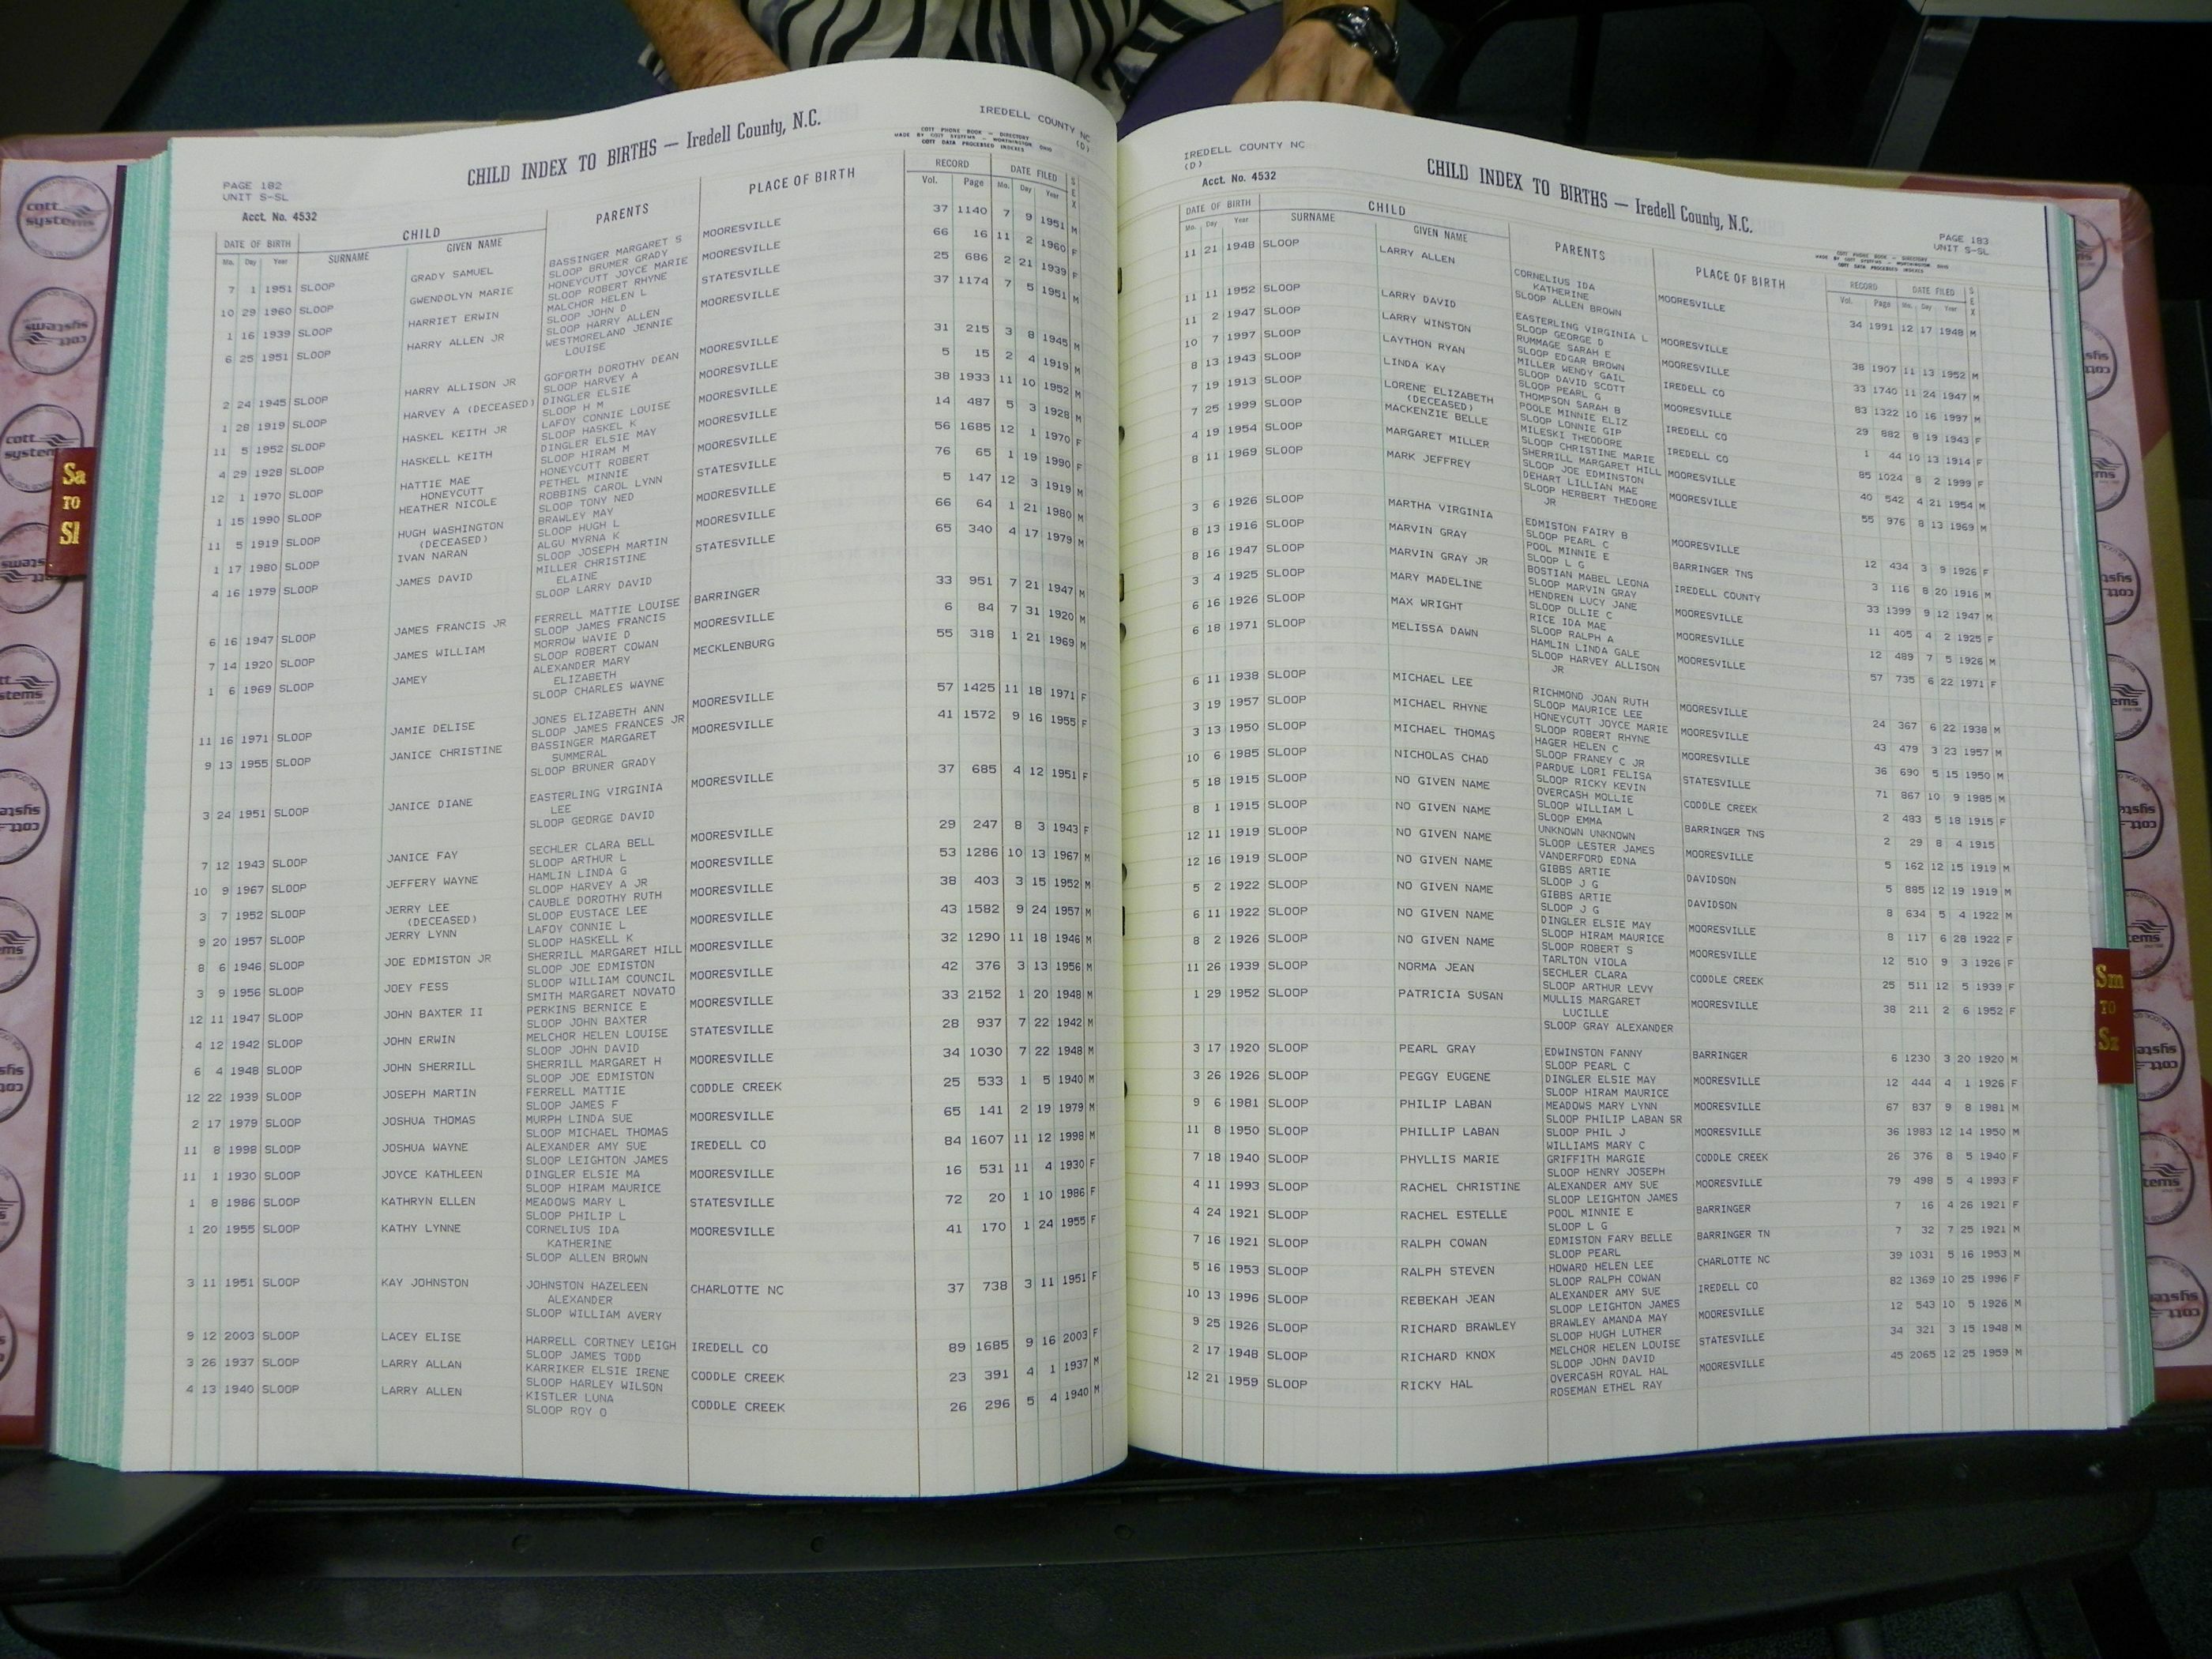 IREDELL COUNTY NC
(D)
CHILD INDEX TO BIRTHS — Iredell County, N.C.
COTT PHONE BOOK — DIRECTORY
MADE BY COTT SYSTEMS — WORTHINGTON, OHIO
COTT DATA PROCESSED INDEXES
PAGE 182
UNIT S-SL
Acct. No. 4532
DATE OF BIRTH CHILD PARENTS PLACE OF BIRTH RECORD DATE FILED SEX
Mo. Day Year SURNAME GIVEN NAME Vol. Page Mo. Day Year
7 1 1951 SLOOP GRADY SAMUEL BASSINGER MARGARET S MOORESVILLE 37 1140 7 9 1951 M
SLOOP BRUMER GRADY
10 29 1960 SLOOP GWENDOLYN MARIE HONEYCUTT JOYCE MARIE MOORESVILLE 66 16 11 2 1960 F
SLOOP ROBERT RHYNE
1 16 1939 SLOOP HARRIET ERWIN MALCHOR HELEN L STATESVILLE 25 686 2 21 1939 F
SLOOP JOHN D
6 25 1951 SLOOP HARRY ALLEN JR SLOOP HARRY ALLEN MOORESVILLE 37 1174 7 5 1951 M
WESTMORELAND JENNIE
LOUISE
2 24 1945 SLOOP HARRY ALLISON JR GOFORTH DOROTHY DEAN MOORESVILLE 31 215 3 8 1945 M
SLOOP HARVEY A
1 28 1919 SLOOP HARVEY A (DECEASED) DINGLER ELSIE MOORESVILLE 5 15 2 4 1919 M
SLOOP H M
11 5 1952 SLOOP HASKEL KEITH JR LAFOY CONNIE LOUISE MOORESVILLE 38 1933 11 10 1952 M
SLOOP HASKEL K
4 29 1928 SLOOP HASKELL KEITH DINGLER ELSIE MAY MOORESVILLE 14 487 5 3 1928 M
SLOOP HIRAM M
12 1 1970 SLOOP HATTIE MAE HONEYCUTT ROBERT MOORESVILLE 56 1685 12 1 1970 F
HONEYCUTT PETHEL MINNIE
1 15 1990 SLOOP HEATHER NICOLE ROBBINS CAROL LYNN STATESVILLE 76 65 1 19 1990 F
SLOOP TONY NED
11 5 1919 SLOOP HUGH WASHINGTON BRAWLEY MAY MOORESVILLE 5 147 12 3 1919 M
(DECEASED) SLOOP HUGH L
1 17 1980 SLOOP IVAN NARAN ALGU MYRNA K MOORESVILLE 66 64 1 21 1980 M
SLOOP JOSEPH MARTIN
4 16 1979 SLOOP JAMES DAVID MILLER CHRISTINE STATESVILLE 65 340 4 17 1979 M
ELAINE
SLOOP LARRY DAVID
6 16 1947 SLOOP JAMES FRANCIS JR FERRELL MATTIE LOUISE BARRINGER 33 951 7 21 1947 M
SLOOP JAMES FRANCIS
7 14 1920 SLOOP JAMES WILLIAM MORROW WAVIE D MOORESVILLE 6 84 7 31 1920 M
SLOOP ROBERT COWAN
1 6 1969 SLOOP JAMEY ALEXANDER MARY MECKLENBURG 55 318 1 21 1969 M
ELIZABETH
SLOOP CHARLES WAYNE
11 16 1971 SLOOP JAMIE DELISE JONES ELIZABETH ANN MOORESVILLE 57 1425 11 18 1971 F
SLOOP JAMES FRANCES JR
9 13 1955 SLOOP JANICE CHRISTINE BASSINGER MARGARET MOORESVILLE 41 1572 9 16 1955 F
SUMMERAL
SLOOP BRUNER GRADY
3 24 1951 SLOOP JANICE DIANE EASTERLING VIRGINIA MOORESVILLE 37 685 4 12 1951 F
LEE
SLOOP GEORGE DAVID
7 12 1943 SLOOP JANICE FAY SECHLER CLARA BELL MOORESVILLE 29 247 8 3 1943 F
SLOOP ARTHUR L
10 9 1967 SLOOP JEFFERY WAYNE HAMLIN LINDA G MOORESVILLE 53 1286 10 13 1967 M
SLOOP HARVEY A JR
3 7 1952 SLOOP JERRY LEE CAUBLE DOROTHY RUTH MOORESVILLE 38 403 3 15 1952 M
(DECEASED) SLOOP EUSTACE LEE
9 20 1957 SLOOP JERRY LYNN LAFOY CONNIE L MOORESVILLE 43 1582 9 24 1957 M
SLOOP HASKELL K
8 6 1946 SLOOP JOE EDMISTON JR SHERRILL MARGARET HILL MOORESVILLE 32 1290 11 18 1946 M
SLOOP JOE EDMISTON
3 9 1956 SLOOP JOEY FESS SLOOP WILLIAM COUNCIL MOORESVILLE 42 376 3 13 1956 M
SMITH MARGARET NOVATO
12 11 1947 SLOOP JOHN BAXTER II PERKINS BERNICE E MOORESVILLE 33 2152 1 20 1948 M
SLOOP JOHN BAXTER
4 12 1942 SLOOP JOHN ERWIN MELCHOR HELEN LOUISE STATESVILLE 28 937 7 22 1942 M
SLOOP JOHN DAVID
6 4 1948 SLOOP JOHN SHERRILL SHERRILL MARGARET H MOORESVILLE 34 1030 7 22 1948 M
SLOOP JOE EDMISTON
12 22 1939 SLOOP JOSEPH MARTIN FERRELL MATTIE CODDLE CREEK 25 533 1 5 1940 M
SLOOP JAMES F
2 17 1979 SLOOP JOSHUA THOMAS MURPH LINDA SUE MOORESVILLE 65 141 2 19 1979 M
SLOOP MICHAEL THOMAS
11 8 1998 SLOOP JOSHUA WAYNE ALEXANDER AMY SUE IREDELL CO 84 1607 11 12 1998 M
SLOOP LEIGHTON JAMES
11 1 1930 SLOOP JOYCE KATHLEEN DINGLER ELSIE MA MOORESVILLE 16 531 11 4 1930 F
SLOOP HIRAM MAURICE
1 8 1986 SLOOP KATHRYN ELLEN MEADOWS MARY L STATESVILLE 72 20 1 10 1986 F
SLOOP PHILIP L
1 20 1955 SLOOP KATHY LYNNE CORNELIUS IDA MOORESVILLE 41 170 1 24 1955 F
KATHERINE
SLOOP ALLEN BROWN
3 11 1951 SLOOP KAY JOHNSTON JOHNSTON HAZELEEN CHARLOTTE NC 37 738 3 11 1951 F
ALEXANDER
SLOOP WILLIAM AVERY
9 12 2003 SLOOP LACEY ELISE HARRELL CORTNEY LEIGH IREDELL CO 89 1685 9 16 2003 F
SLOOP JAMES TODD
3 26 1937 SLOOP LARRY ALLAN KARRIKER ELSIE IRENE CODDLE CREEK 23 391 4 1 1937 M
SLOOP HARLEY WILSON
4 13 1940 SLOOP LARRY ALLEN KISTLER LUNA CODDLE CREEK 26 296 5 4 1940 M
SLOOP ROY O
IREDELL COUNTY NC
(D)
Acct. No. 4532
CHILD INDEX TO BIRTHS — Iredell County, N.C.
PAGE 183
UNIT S-SL
COTT PHONE BOOK — DIRECTORY
MADE BY COTT SYSTEMS — WORTHINGTON OHIO
COTT DATA PROCESSED INDEXES
DATE OF BIRTH CHILD PARENTS PLACE OF BIRTH RECORD DATE FILED SEX
Mo. Day Year SURNAME GIVEN NAME Vol. Page Mo. Day Year
11 21 1948 SLOOP LARRY ALLEN CORNELIUS IDA MOORESVILLE 34 1991 12 17 1948 M
KATHERINE
SLOOP ALLEN BROWN
11 11 1952 SLOOP LARRY DAVID EASTERLING VIRGINIA L MOORESVILLE 38 1907 11 13 1952 M
SLOOP GEORGE D
11 2 1947 SLOOP LARRY WINSTON RUMMAGE SARAH E MOORESVILLE 33 1740 11 24 1947 M
SLOOP EDGAR BROWN
10 7 1997 SLOOP LAYTHON RYAN MILLER WENDY GAIL IREDELL CO 83 1322 10 16 1997 M
SLOOP DAVID SCOTT
8 13 1943 SLOOP LINDA KAY SLOOP PEARL G MOORESVILLE 29 882 8 19 1943 F
THOMPSON SARAH B
7 19 1913 SLOOP LORENE ELIZABETH POOLE MINNIE ELIZ IREDELL CO 1 44 10 13 1914 F
(DECEASED) SLOOP LONNIE GIP
7 25 1999 SLOOP MACKENZIE BELLE MILESKI THEODORE IREDELL CO 85 1024 8 2 1999 F
SLOOP CHRISTINE MARIE
4 19 1954 SLOOP MARGARET MILLER SHERRILL MARGARET HILL MOORESVILLE 40 542 4 21 1954 M
SLOOP JOE EDMINSTON
8 11 1969 SLOOP MARK JEFFREY DEHART LILLIAN MAE MOORESVILLE 55 976 8 13 1969 M
SLOOP HERBERT THEDORE
JR
3 6 1926 SLOOP MARTHA VIRGINIA EDMISTON FAIRY B MOORESVILLE 12 434 3 9 1926 F
SLOOP PEARL C
8 13 1916 SLOOP MARVIN GRAY POOL MINNIE E BARRINGER TNS 3 116 8 20 1916 M
SLOOP L G
8 16 1947 SLOOP MARVIN GRAY JR BOSTIAN MABEL LEONA IREDELL COUNTY 33 1399 9 12 1947 M
SLOOP MARVIN GRAY
3 4 1925 SLOOP MARY MADELINE HENDREN LUCY JANE MOORESVILLE 11 405 4 2 1925 F
SLOOP OLLIE C
6 16 1926 SLOOP MAX WRIGHT RICE IDA MAE MOORESVILLE 12 489 7 5 1926 M
SLOOP RALPH A
6 18 1971 SLOOP MELISSA DAWN HAMLIN LINDA GALE MOORESVILLE 57 735 6 22 1971 F
SLOOP HARVEY ALLISON
JR
6 11 1938 SLOOP MICHAEL LEE RICHMOND JOAN RUTH MOORESVILLE 24 367 6 22 1938 M
SLOOP MAURICE LEE
3 19 1957 SLOOP MICHAEL RHYNE HONEYCUTT JOYCE MARIE MOORESVILLE 43 479 3 23 1957 M
SLOOP ROBERT RHYNE
3 13 1950 SLOOP MICHAEL THOMAS HAGER HELEN C MOORESVILLE 36 690 5 15 1950 M
SLOOP FRANEY C JR
10 6 1985 SLOOP NICHOLAS CHAD PARDUE LORI FELISA STATESVILLE 71 867 10 9 1985 M
SLOOP RICKY KEVIN
5 18 1915 SLOOP NO GIVEN NAME OVERCASH MOLLIE CODDLE CREEK 2 483 5 18 1915 F
SLOOP WILLIAM L
8 1 1915 SLOOP NO GIVEN NAME SLOOP EMMA BARRINGER TNS 2 29 8 4 1915
UNKNOWN UNKNOWN
12 11 1919 SLOOP NO GIVEN NAME SLOOP LESTER JAMES MOORESVILLE 5 162 12 15 1919 M
VANDERFORD EDNA
12 16 1919 SLOOP NO GIVEN NAME GIBBS ARTIE DAVIDSON 5 885 12 19 1919 M
SLOOP J G
5 2 1922 SLOOP NO GIVEN NAME GIBBS ARTIE DAVIDSON 8 634 5 4 1922 M
SLOOP J G
6 11 1922 SLOOP NO GIVEN NAME DINGLER ELSIE MAY MOORESVILLE 8 117 6 28 1922 F
SLOOP HIRAM MAURICE
8 2 1926 SLOOP NO GIVEN NAME SLOOP ROBERT S MOORESVILLE 12 510 9 3 1926 F
TARLTON VIOLA
11 26 1939 SLOOP NORMA JEAN SECHLER CLARA CODDLE CREEK 25 511 12 5 1939 F
SLOOP ARTHUR LEVY
1 29 1952 SLOOP PATRICIA SUSAN MULLIS MARGARET MOORESVILLE 38 211 2 6 1952 F
LUCILLE
SLOOP GRAY ALEXANDER
3 17 1920 SLOOP PEARL GRAY EDWINSTON FANNY BARRINGER 6 1230 3 20 1920 M
SLOOP PEARL C
3 26 1926 SLOOP PEGGY EUGENE DINGLER ELSIE MAY MOORESVILLE 12 444 4 1 1926 F
SLOOP HIRAM MAURICE
9 6 1981 SLOOP PHILIP LABAN MEADOWS MARY LYNN MOORESVILLE 67 837 9 8 1981 M
SLOOP PHILIP LABAN SR
11 8 1950 SLOOP PHILLIP LABAN SLOOP PHIL J MOORESVILLE 36 1983 12 14 1950 M
WILLIAMS MARY C
7 18 1940 SLOOP PHYLLIS MARIE GRIFFITH MARGIE CODDLE CREEK 26 376 8 5 1940 F
SLOOP HENRY JOSEPH
4 11 1993 SLOOP RACHEL CHRISTINE ALEXANDER AMY SUE MOORESVILLE 79 498 5 4 1993 F
SLOOP LEIGHTON JAMES
4 24 1921 SLOOP RACHEL ESTELLE POOL MINNIE E BARRINGER 7 16 4 26 1921 F
SLOOP L G
7 16 1921 SLOOP RALPH COWAN EDMISTON FARY BELLE BARRINGER TN 7 32 7 25 1921 M
SLOOP PEARL
5 16 1953 SLOOP RALPH STEVEN HOWARD HELEN LEE CHARLOTTE NC 39 1031 5 16 1953 M
SLOOP RALPH COWAN
10 13 1996 SLOOP REBEKAH JEAN ALEXANDER AMY SUE IREDELL CO 82 1369 10 25 1996 F
SLOOP LEIGHTON JAMES
9 25 1926 SLOOP RICHARD BRAWLEY BRAWLEY AMANDA MAY MOORESVILLE 12 543 10 5 1926 M
SLOOP HUGH LUTHER
2 17 1948 SLOOP RICHARD KNOX MELCHOR HELEN LOUISE STATESVILLE 34 321 3 15 1948 M
SLOOP JOHN DAVID
12 21 1959 SLOOP RICKY HAL OVERCASH ROYAL HAL MOORESVILLE 45 2065 12 25 1959 M
ROSEMAN ETHEL RAY
Sa
TO
Sl
Sm
TO
Sz
cott
systems